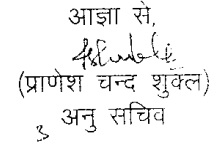 आज्ञा से,
(प्राणेश चन्द शुक्ल)
अनु सचिव